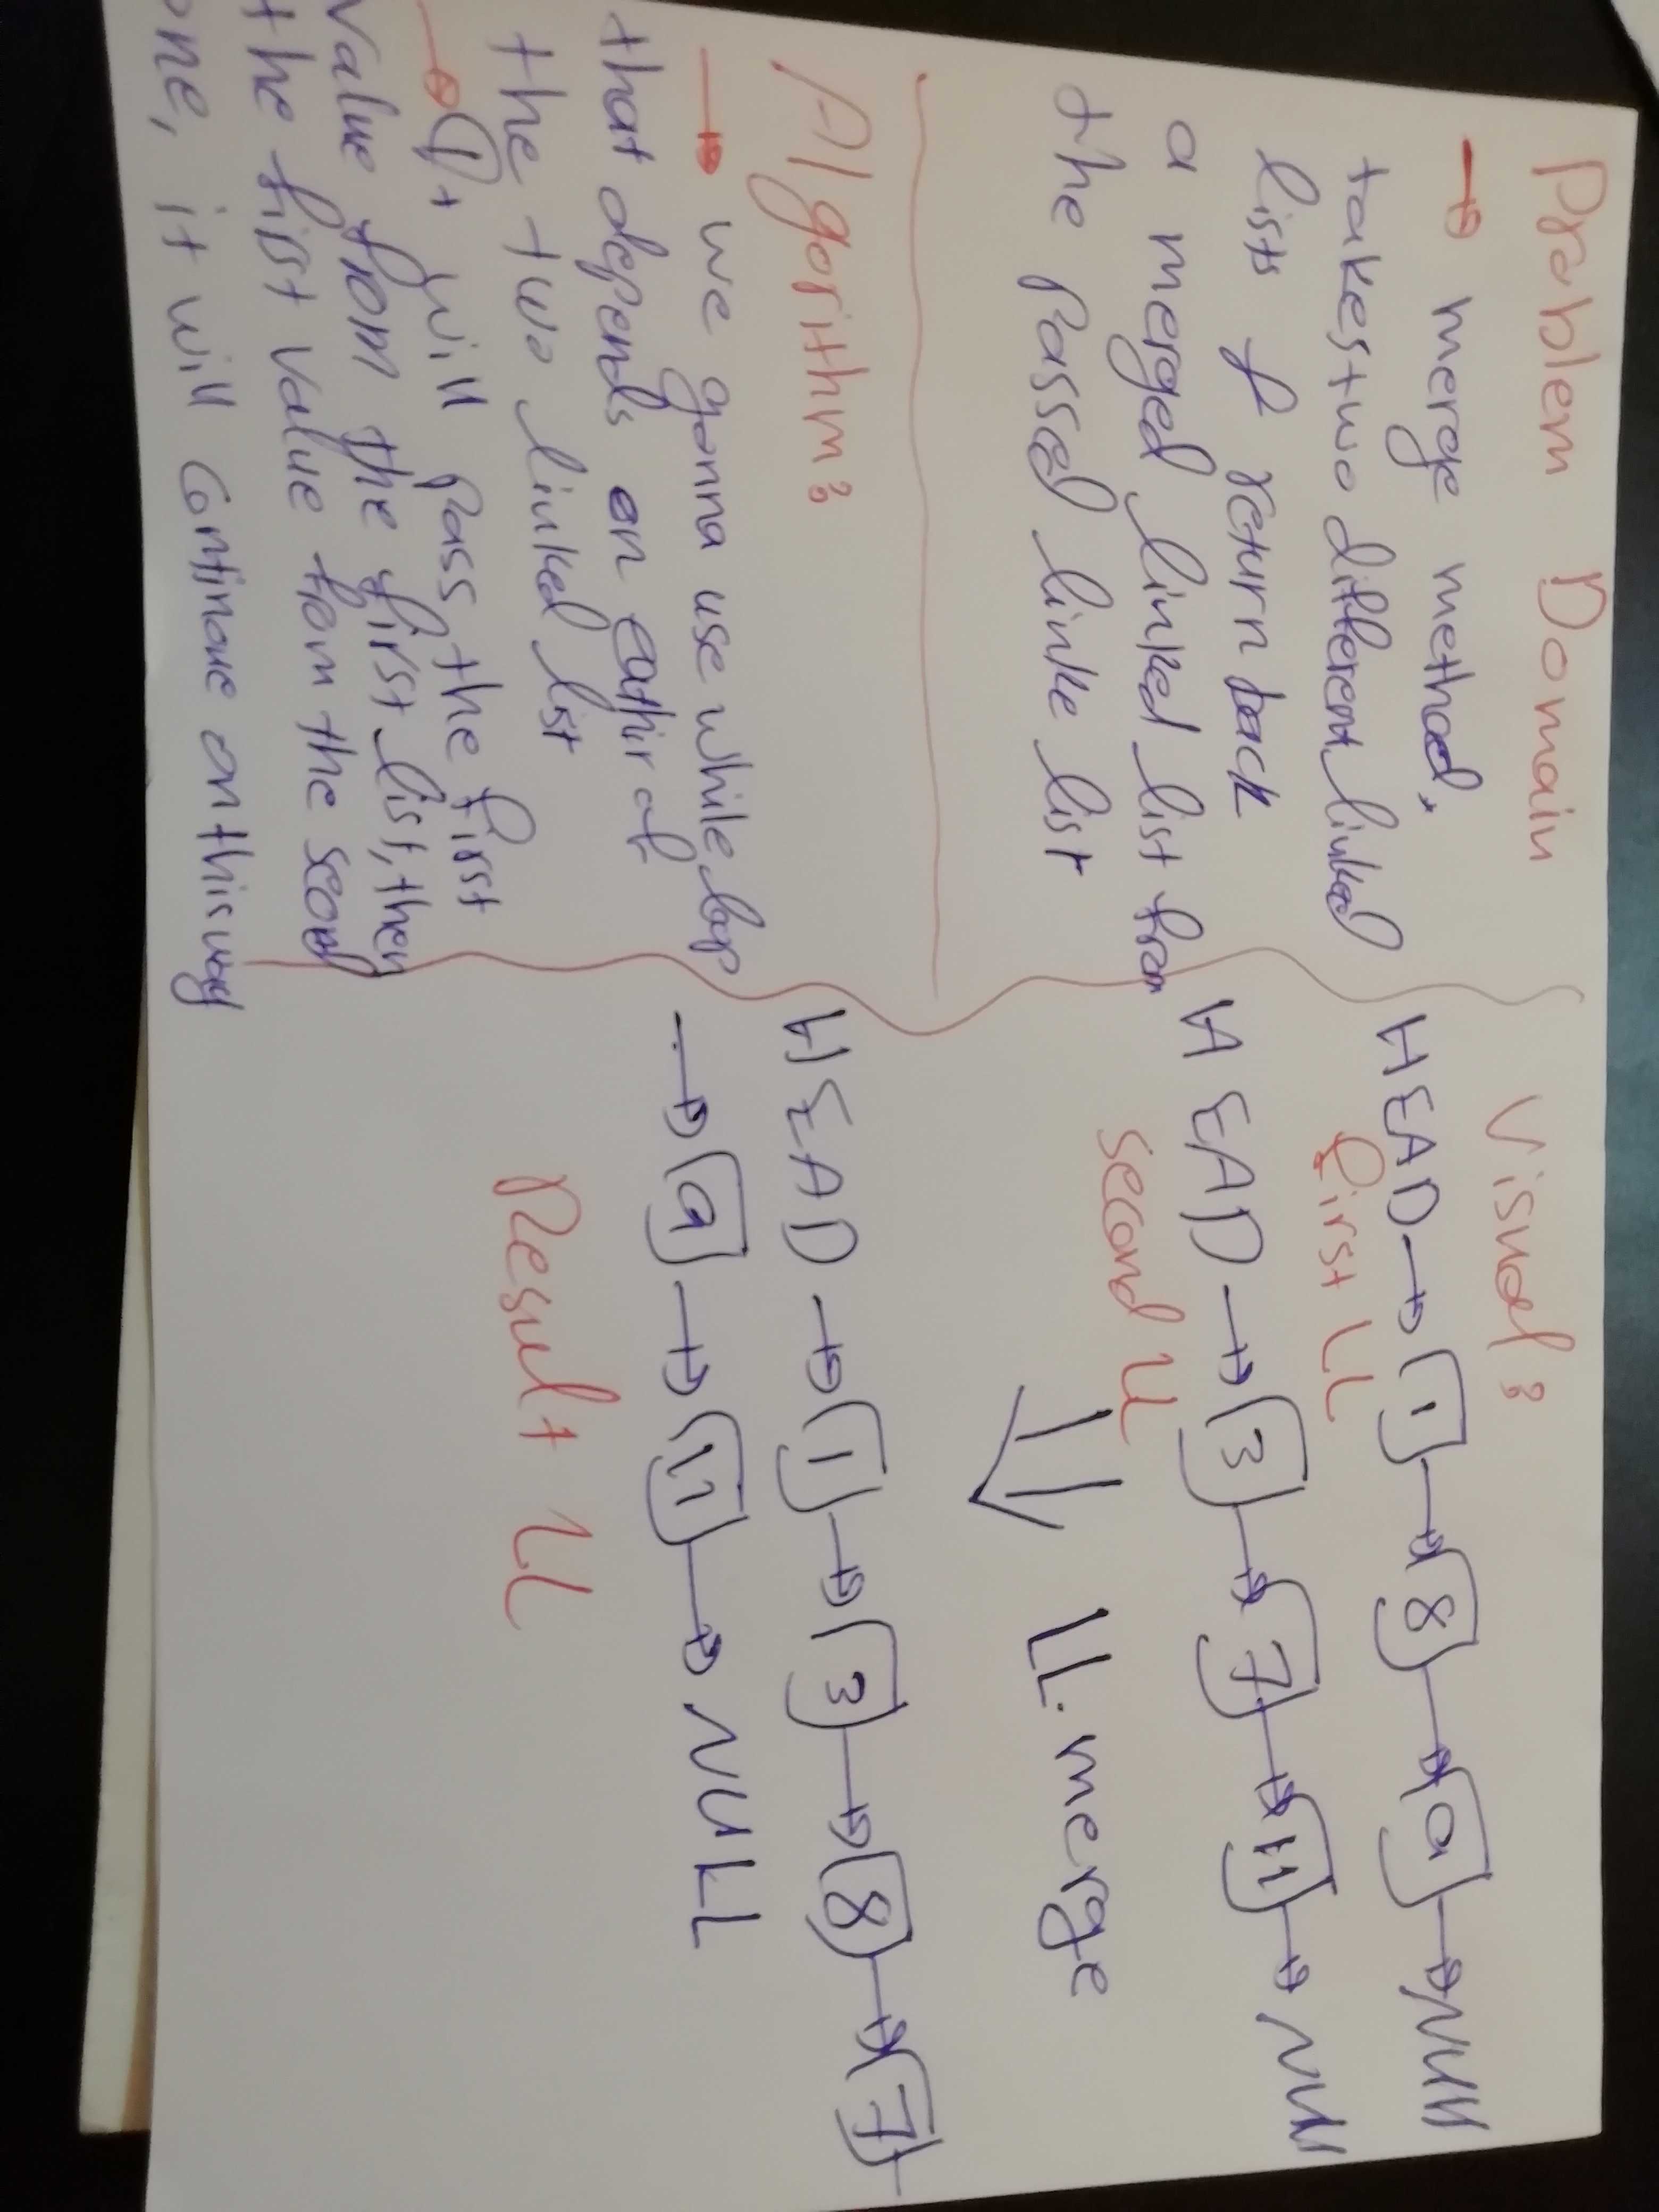 Problem Domain
→ merge method,
takes two different linked
lists & return back
a merged linked list from
the passed linke list
Algorithm:
→ we gonna use while loop
that depends on eathir of
the two linked list
→ It will pass the first
value from the first list, then
the first value from the second
one, it will continue on this way
Visual:
HEAD → 1 → 8 → 9 → NUll
First LL
HEAD → 3 → 7 → 11 → NUll
second LL
⇒ LL.merge
HEAD → 1 → 3 → 8 → 7
→ 9 → 11 → NULL
Result LL